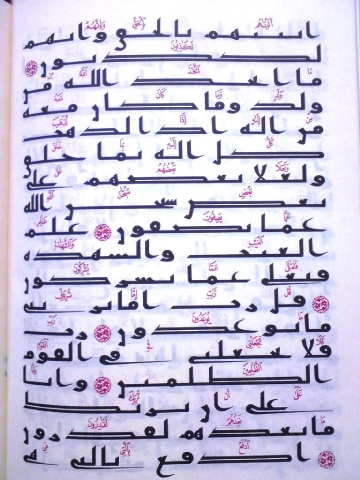 اتينهم بالحق وانهم
لكذبون
ما اتخذ الله من
ولد وما كان معه
من اله اذا لذهب
كل اله بما خلق
ولعلا بعضهم على
بعض سبحن الله
عما يصفون علم
الغيب والشهدة
فتعلى عما يشركون
قل رب اما تريني
ما يوعدون رب
فلا تجعلني في القوم
الظلمين وانا
على ان نريك
ما نعدهم لقدرون
ادفع بالتي هي